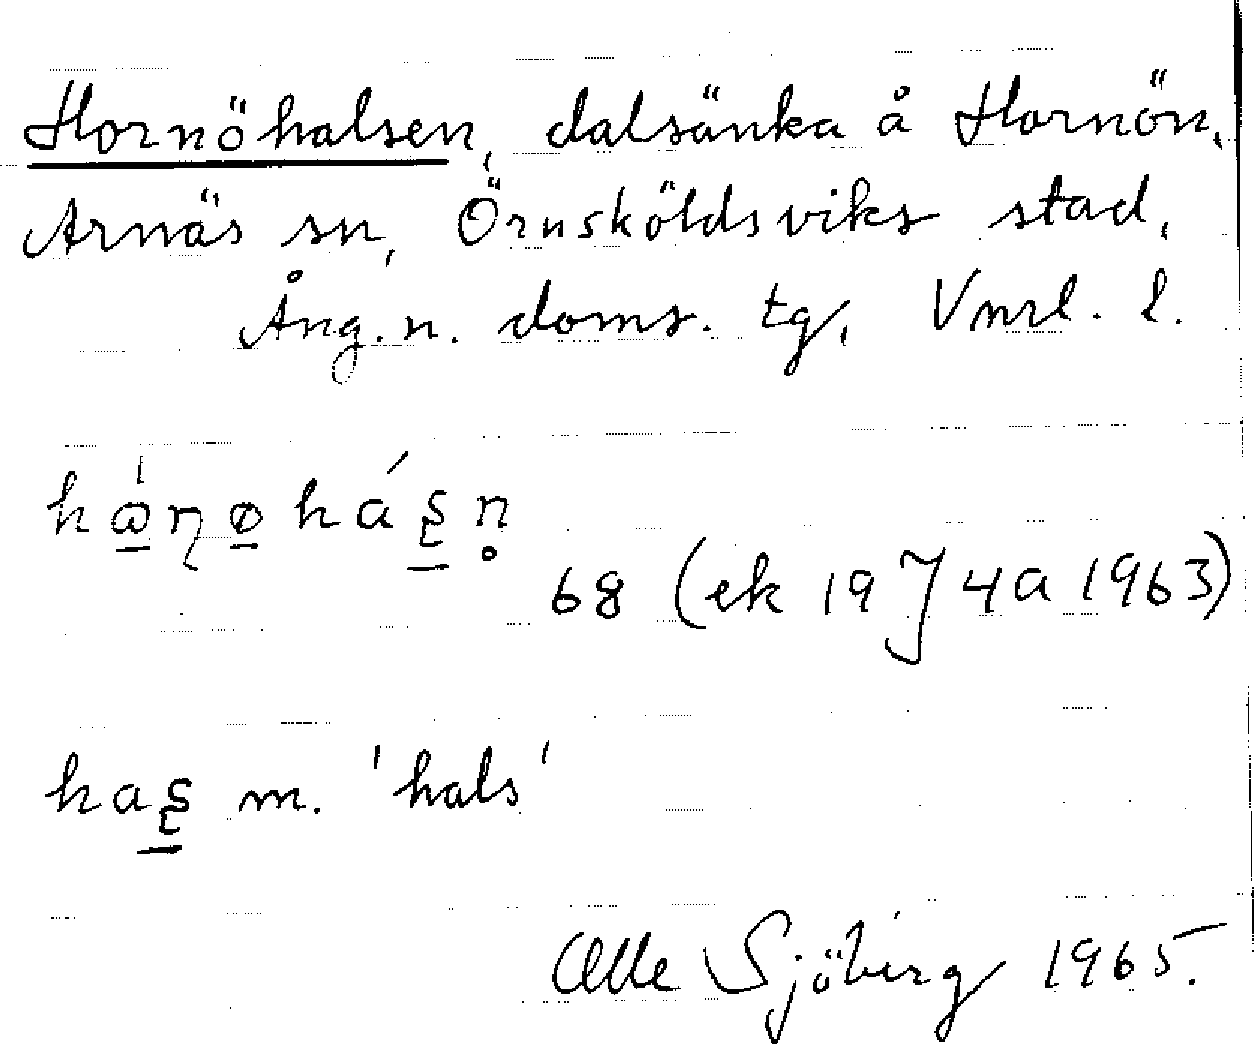 Hornöhalsen, dalsänka å Hornön,
Arnäs sn, Örnsköldsviks stad,
Ång. n. doms. tg, Vnrl. l.
68 (ek 19 J 4a 1963)
m. 'hals'
Olle Sjöberg 1965.